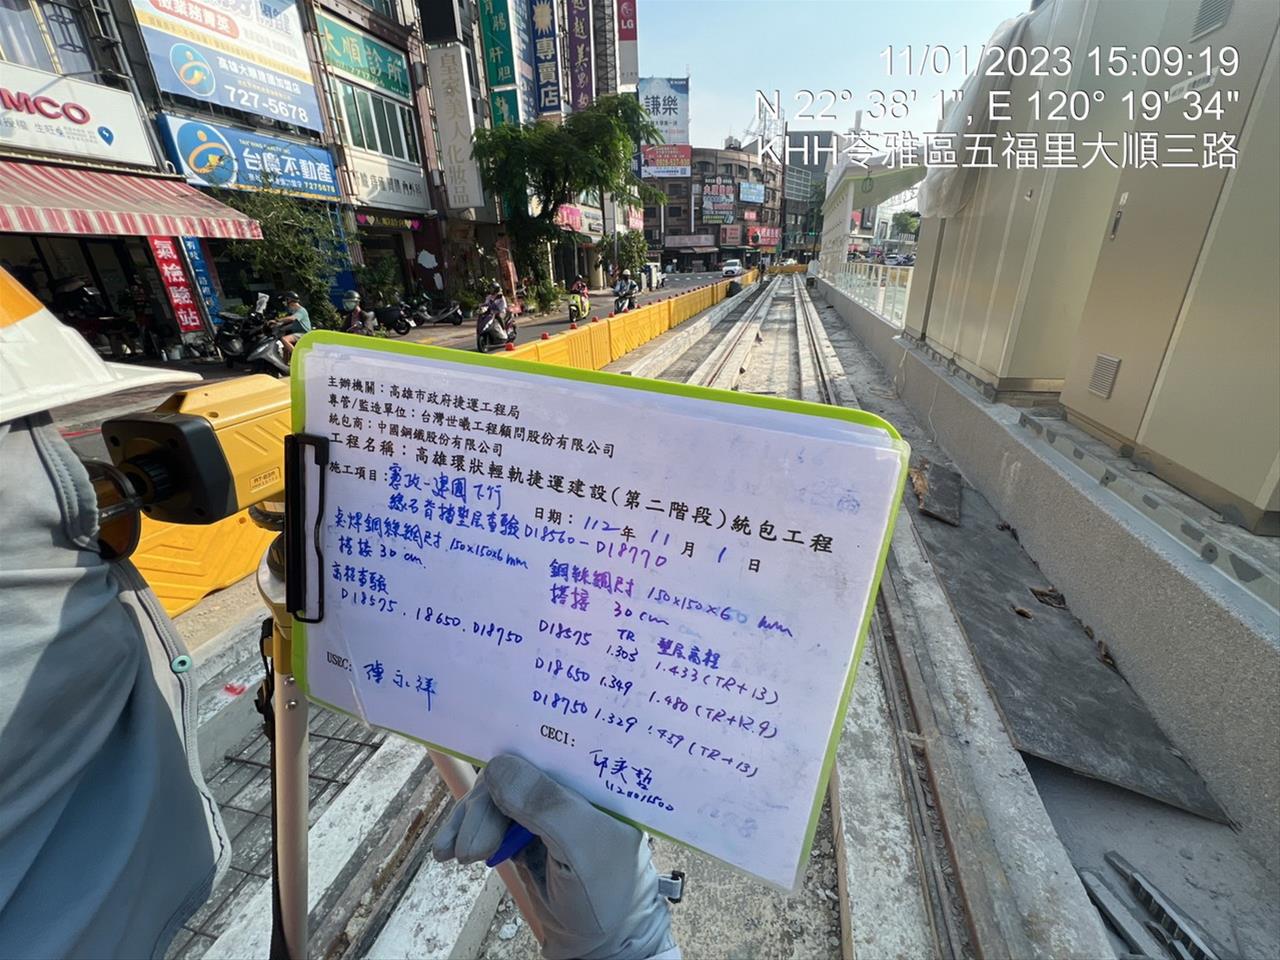 11/01/2023 15:09:19
N 22° 38' 1", E 120° 19' 34"
KHH苓雅區五福里大順三路
高雄大順捷運加盟店
727-5678
台慶不動產
7275678
大順診所
專賣店
LG
謙樂
MCO
氣檢驗站
皇家美人化妝品
主辦機關：高雄市政府捷運工程局
專管/監造單位：台灣世曦工程顧問股份有限公司
統包商：中國鋼鐵股份有限公司
工程名稱：高雄環狀輕軌捷運建設(第二階段)統包工程
施工項目：憲政-建國下行
日期：112年 11 月 1 日
緣石背擋墊層查驗 D18560-D18770
點焊鋼絲網尺寸 150x150x6mm
搭接 30 cm
高程查驗
D18575. 18650. D18750
鋼絲網尺寸 150x150x60 mm
搭接 30 cm
TR 墊層高程
D18575 1.303 1.433(TR+13)
D18650 1.349 1.480(TR+12.9)
D18750 1.329 1.459(TR+13)
USEC: 陳永祥
CECI: